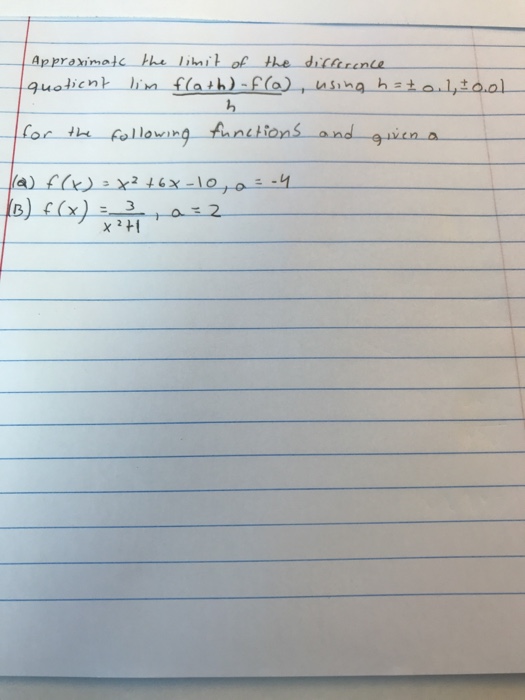 Approximate the limit of the difference
quotient lim f(a+h)-f(a)/h, using h=±0.1,±0.01
for the following functions and given a
(a) f(x)=x²+6x-10, a=-4
(B) f(x)=3/x²+1, a=2